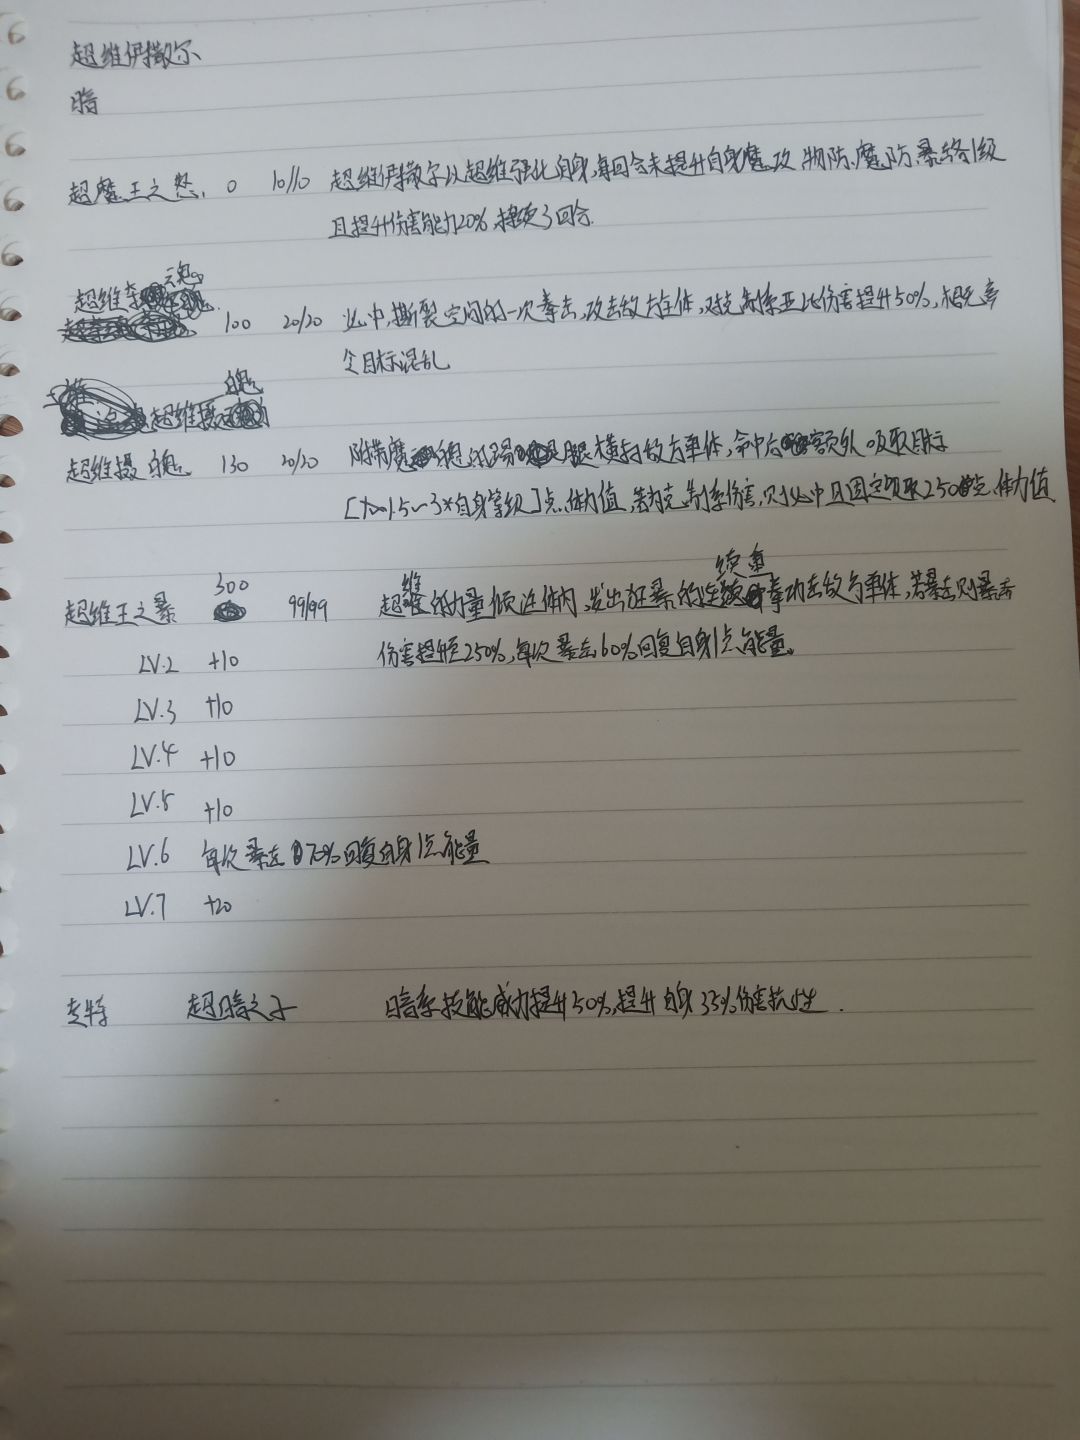 超维伊撒尔
暗
超魔王之怒 0 10/10 超维伊撒尔以超维强化自身,每回合末提升自身魔攻、物防、魔防、暴络1级
且提升伤害能力20%,持续3回合.
魂
超维拳
100 20/20 必中,撕裂空间的一次拳击,攻击敌方全体,对克制系亚比伤害提升50%,
令目标混乱
超维摄
超维摄魂 130 20/20 附带魔 的 腿横扫敌方单体,命中后额外吸取目标
[1.5~3*自身等级]点体力值,若为克制系伤害,则必中且固定吸取250点体力值
300 维 续
超维王之暴 99/99 超维的力量倾注体内,发出狂暴的连续拳功击敌方单体,若暴击则暴击
LV.2 +10 伤害提升至250%,每次暴击60%回复自身1点能量。
LV.3 +10
LV.4 +10
LV.5 +10
LV.6 每次暴击70%回复自身1点能量
LV.7 +20
专特 超暗之子 暗系技能威力提升50%,提升自身35%伤害抗性.